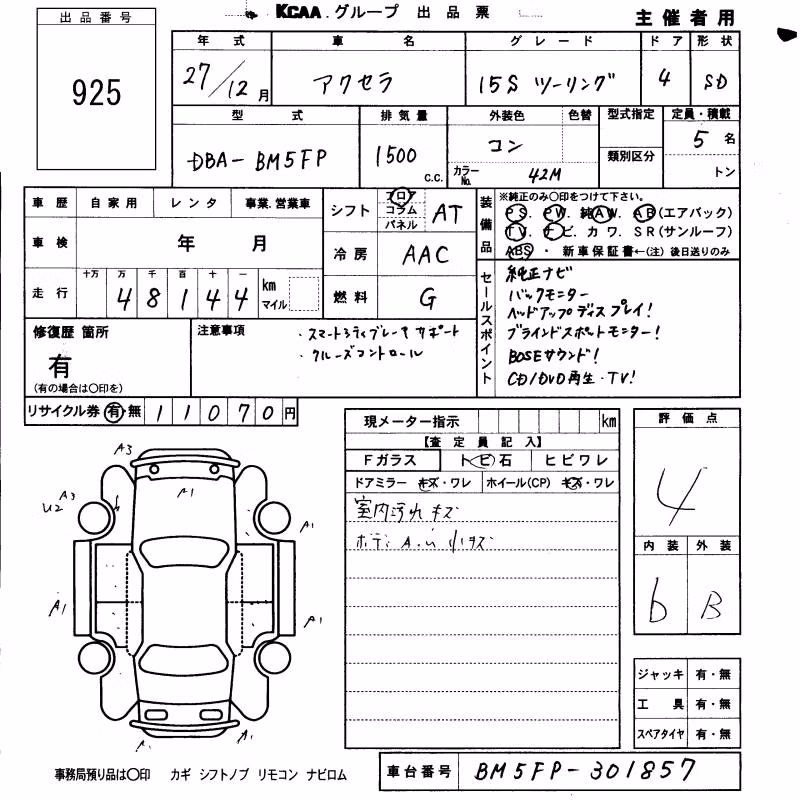 KCAA グループ 出品票
主催者用
出品番号
925
年式 車名 グレード ドア 形状
27/12月 アクセラ 15S ツーリング 4 SD
型式 排気量 外装色 色替 型式指定 定員・積載
DBA-BM5FP 1500 c.c. コン カラーNo. 42M 類別区分 5名 トン
車歴 自家用 レンタ 事業.営業車
車検 年 月
走行 十万 万 千 百 十 一 km マイル
48144
シフト フロア コラム パネル AT
冷房 AAC
燃料 G
装備品
※純正のみ〇印をつけて下さい。
PS. PW. 純AW. AB(エアバック)
TV. ナビ. カワ. SR(サンルーフ)
ABS・ 新車保証書←(注)後日送りのみ
セールスポイント
純正ナビ
バックモニター
ヘッドアップディスプレイ!
ブラインドスポットモニター!
BOSEサウンド!
CD/DVD再生・TV!
修復歴 箇所
有
(有の場合は〇印を)
注意事項
・スマートシティブレーキサポート
・クルーズコントロール
リサイクル券 有・無 11070円
現メーター指示 km
【査定員記入】
Fガラス トビ石 ヒビワレ
ドアミラー キズ・ワレ ホイール(CP) キズ・ワレ
室内汚れキズ
ボディA.U小キズ
評価点
4
内装 外装
b B
A3
A1
A3
U2
A1
A1
A1
A1
A1
ジャッキ 有・無
工具 有・無
スペアタイヤ 有・無
事務局預り品は〇印 カギ シフトノブ リモコン ナビロム
車台番号 BM5FP-301857